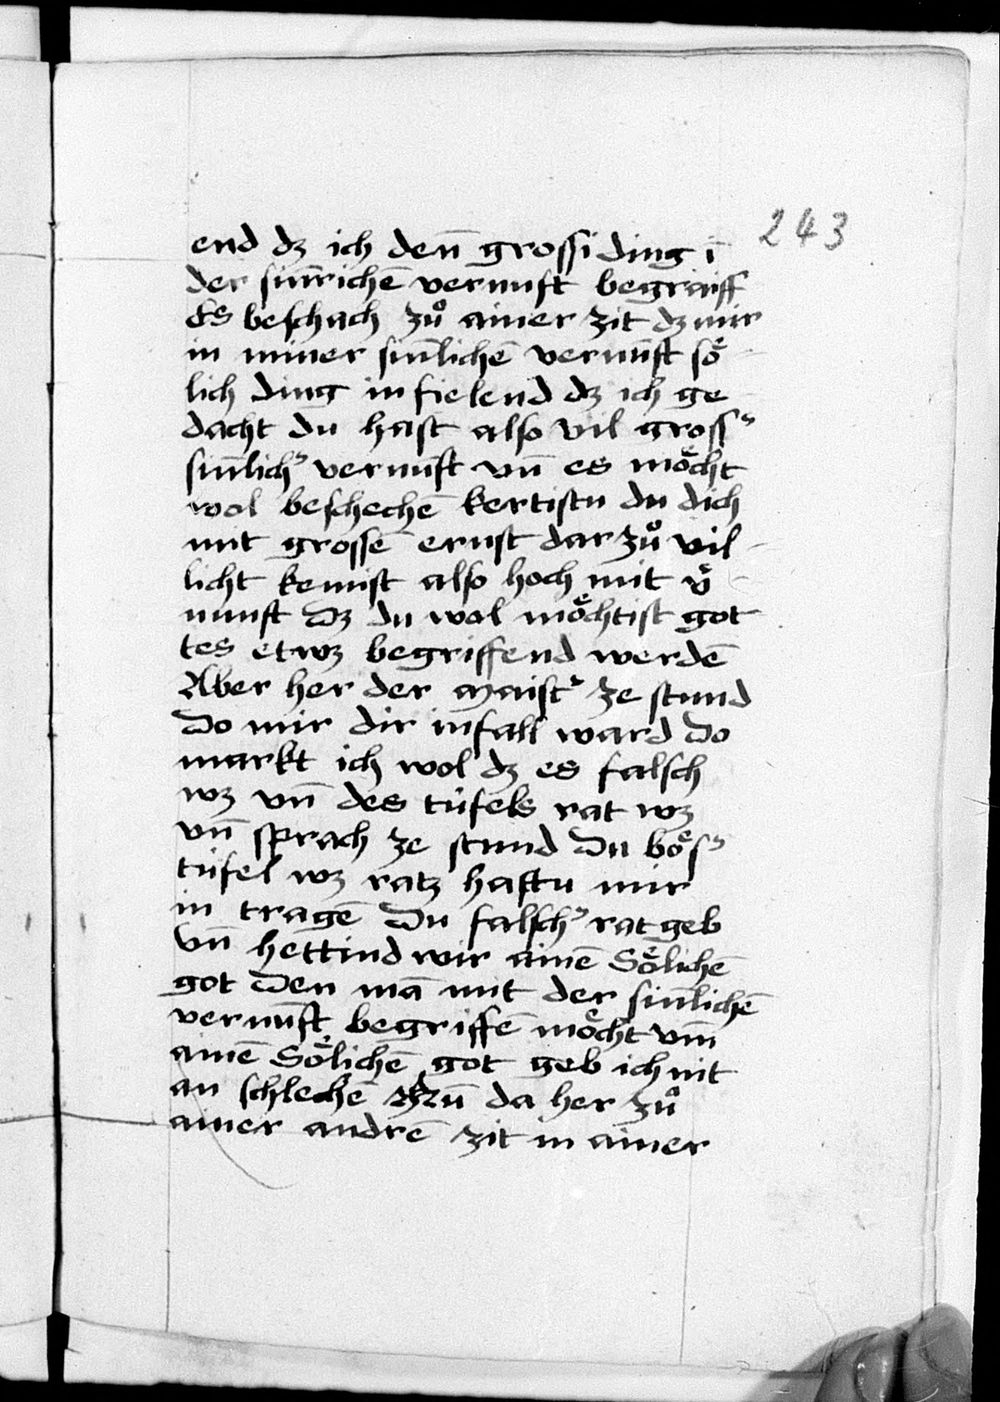 243
end dz ich den̄ grossi ding ī
der sin̄richē vernuft begraiff
Es beschach zuͦ ainer zit dz mir
in miner sin̄lichē vernuft soͤ
lich ding in fielend dz ich ge
dacht du hast also vil gross᾽
sin̄lich᾽ vernuft vn̄ es moͤcht
wol beschechē kertistu du dich
mit grossē ernst dar zuͦ vil
licht kemist also hoch mit v̄
nunft dz du wol moͤchtist got
tes etwz begriffend werdē
Aber her der maist᾽ ze stund
do mir dir infall ward do
markt ich wol dz es falsch
wz vn̄ des tüfels rat wz
vn̄ sprach ze stund du boͤs᾽
tüfel wz ratz hastu mir
in tragē du falsch᾽ rat geb
vn̄ hettind wir ainē soͤlichē
got den mā mit der sin̄lichē
vernuft begriffē moͤcht vm̄
ainē soͤlichē got geb ich nit
an schlechē da her zuͦ
ainer andrē zit in ainer